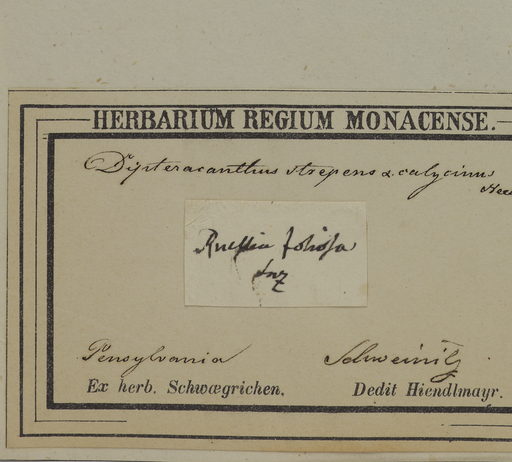 HERBARIUM REGIUM MONACENSE.
Dipteracanthus strepens α. calycinus
Nees
Ruellia foliosa
Pensylvania Schweinitz
Ex herb. Schwægrichen. Dedit Hiendlmayr.